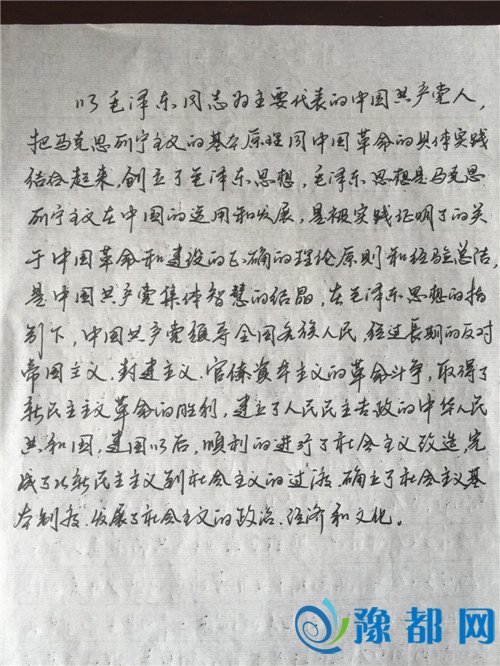 以毛泽东同志为主要代表的中国共产党人,
把马克思列宁主义的基本原理同中国革命的具体实践
结合起来,创立了毛泽东思想,毛泽东思想是马克思
列宁主义在中国的运用和发展,是被实践证明了的关
于中国革命和建设的正确的理论原则和经验总结,
是中国共产党集体智慧的结晶,在毛泽东思想的指
引下,中国共产党领导全国各族人民,经过长期的反对
帝国主义、封建主义、官僚资本主义的革命斗争,取得了
新民主主义革命的胜利,建立了人民民主专政的中华人民
共和国,建国以后,顺利的进行了社会主义改造,完
成了从新民主主义到社会主义的过渡,确立了社会主义基
本制度,发展了社会主义的政治、经济和文化。
豫都网